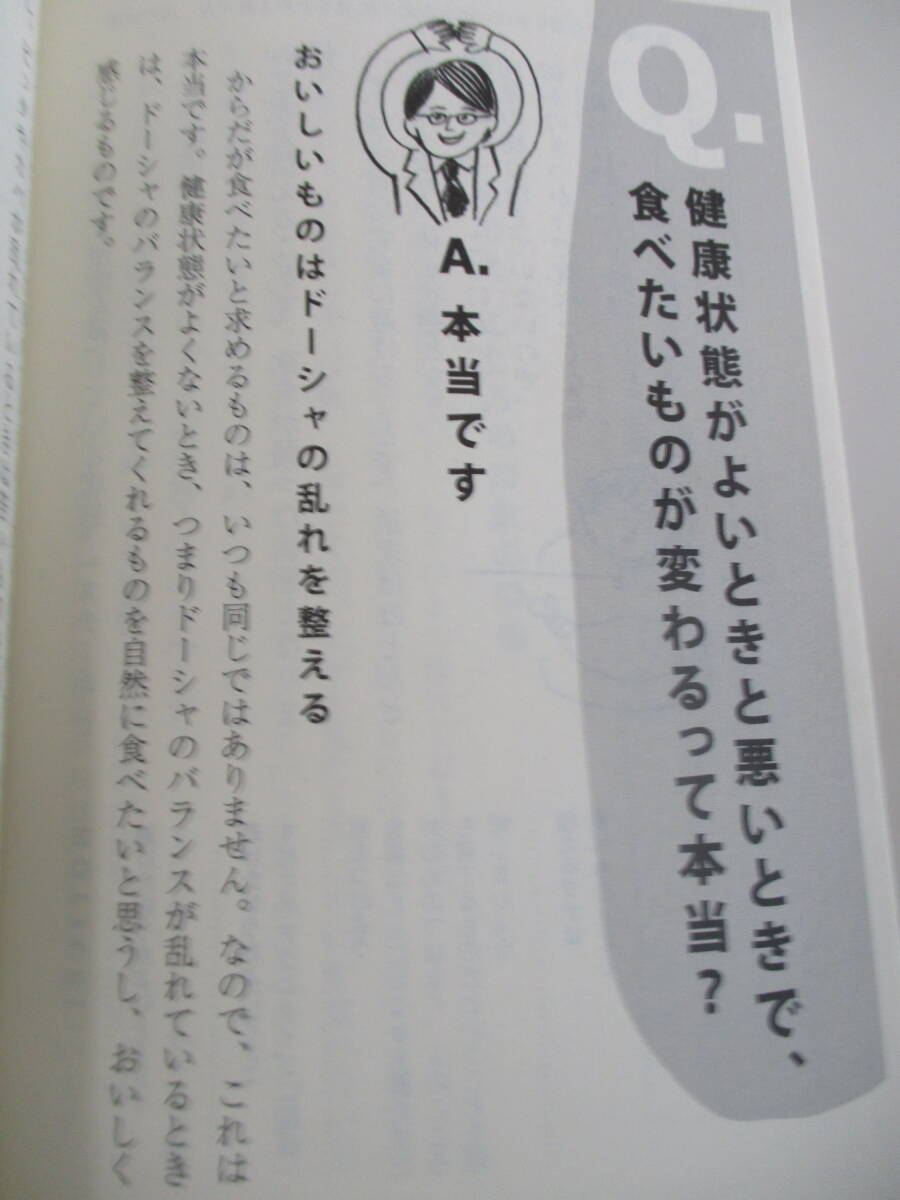 Q.
健康状態がよいときと悪いときで、
食べたいものが変わるって本当?
A. 本当です
おいしいものはドーシャの乱れを整える
からだが食べたいと求めるものは、いつも同じではありません。なので、これは
本当です。健康状態がよくないとき、つまりドーシャのバランスが乱れているとき
は、ドーシャのバランスを整えてくれるものを自然に食べたいと思うし、おいしく
感じるものです。